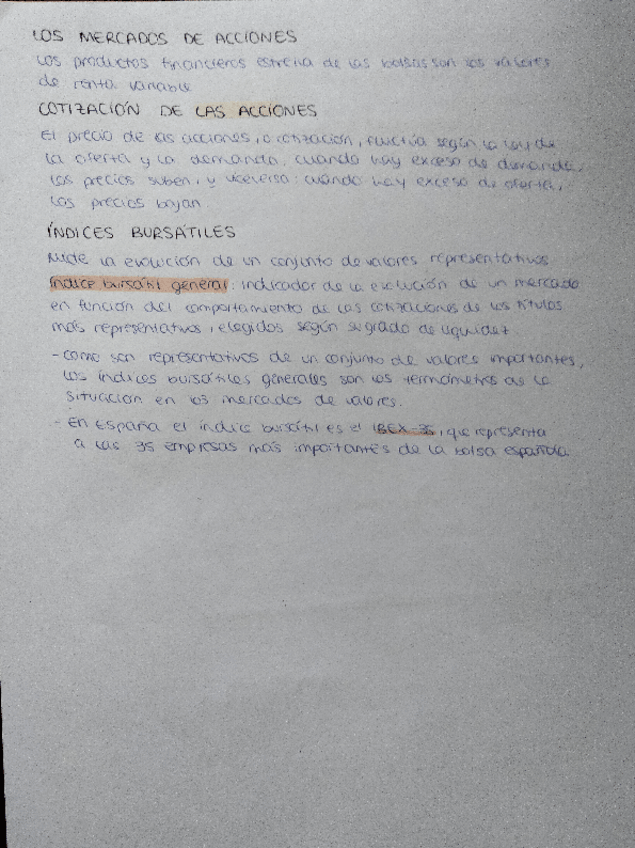 LOS MERCADOS DE ACCIONES
Los productos financieros estrella de las bolsas son los valores
de renta variable
COTIZACIÓN DE LAS ACCIONES
El precio de las acciones, o cotización, fluctúa según la ley de
la oferta y la demanda. cuando hay exceso de demanda,
los precios suben, y viceversa: cuando hay exceso de oferta,
los precios bajan.
ÍNDICES BURSÁTILES
Mide la evolución de un conjunto de valores representativos.
Índice bursátil general: indicador de la evolución de un mercado
en función del comportamiento de las cotizaciones de los títulos
más representativos, elegidos según su grado de liquidez.
- como son representativos de un conjunto de valores importantes,
los índices bursátiles generales son los termómetros de la
situación en los mercados de valores.
- En España el índice bursátil es el IBEX-35, que representa
a las 35 empresas más importantes de la bolsa española.